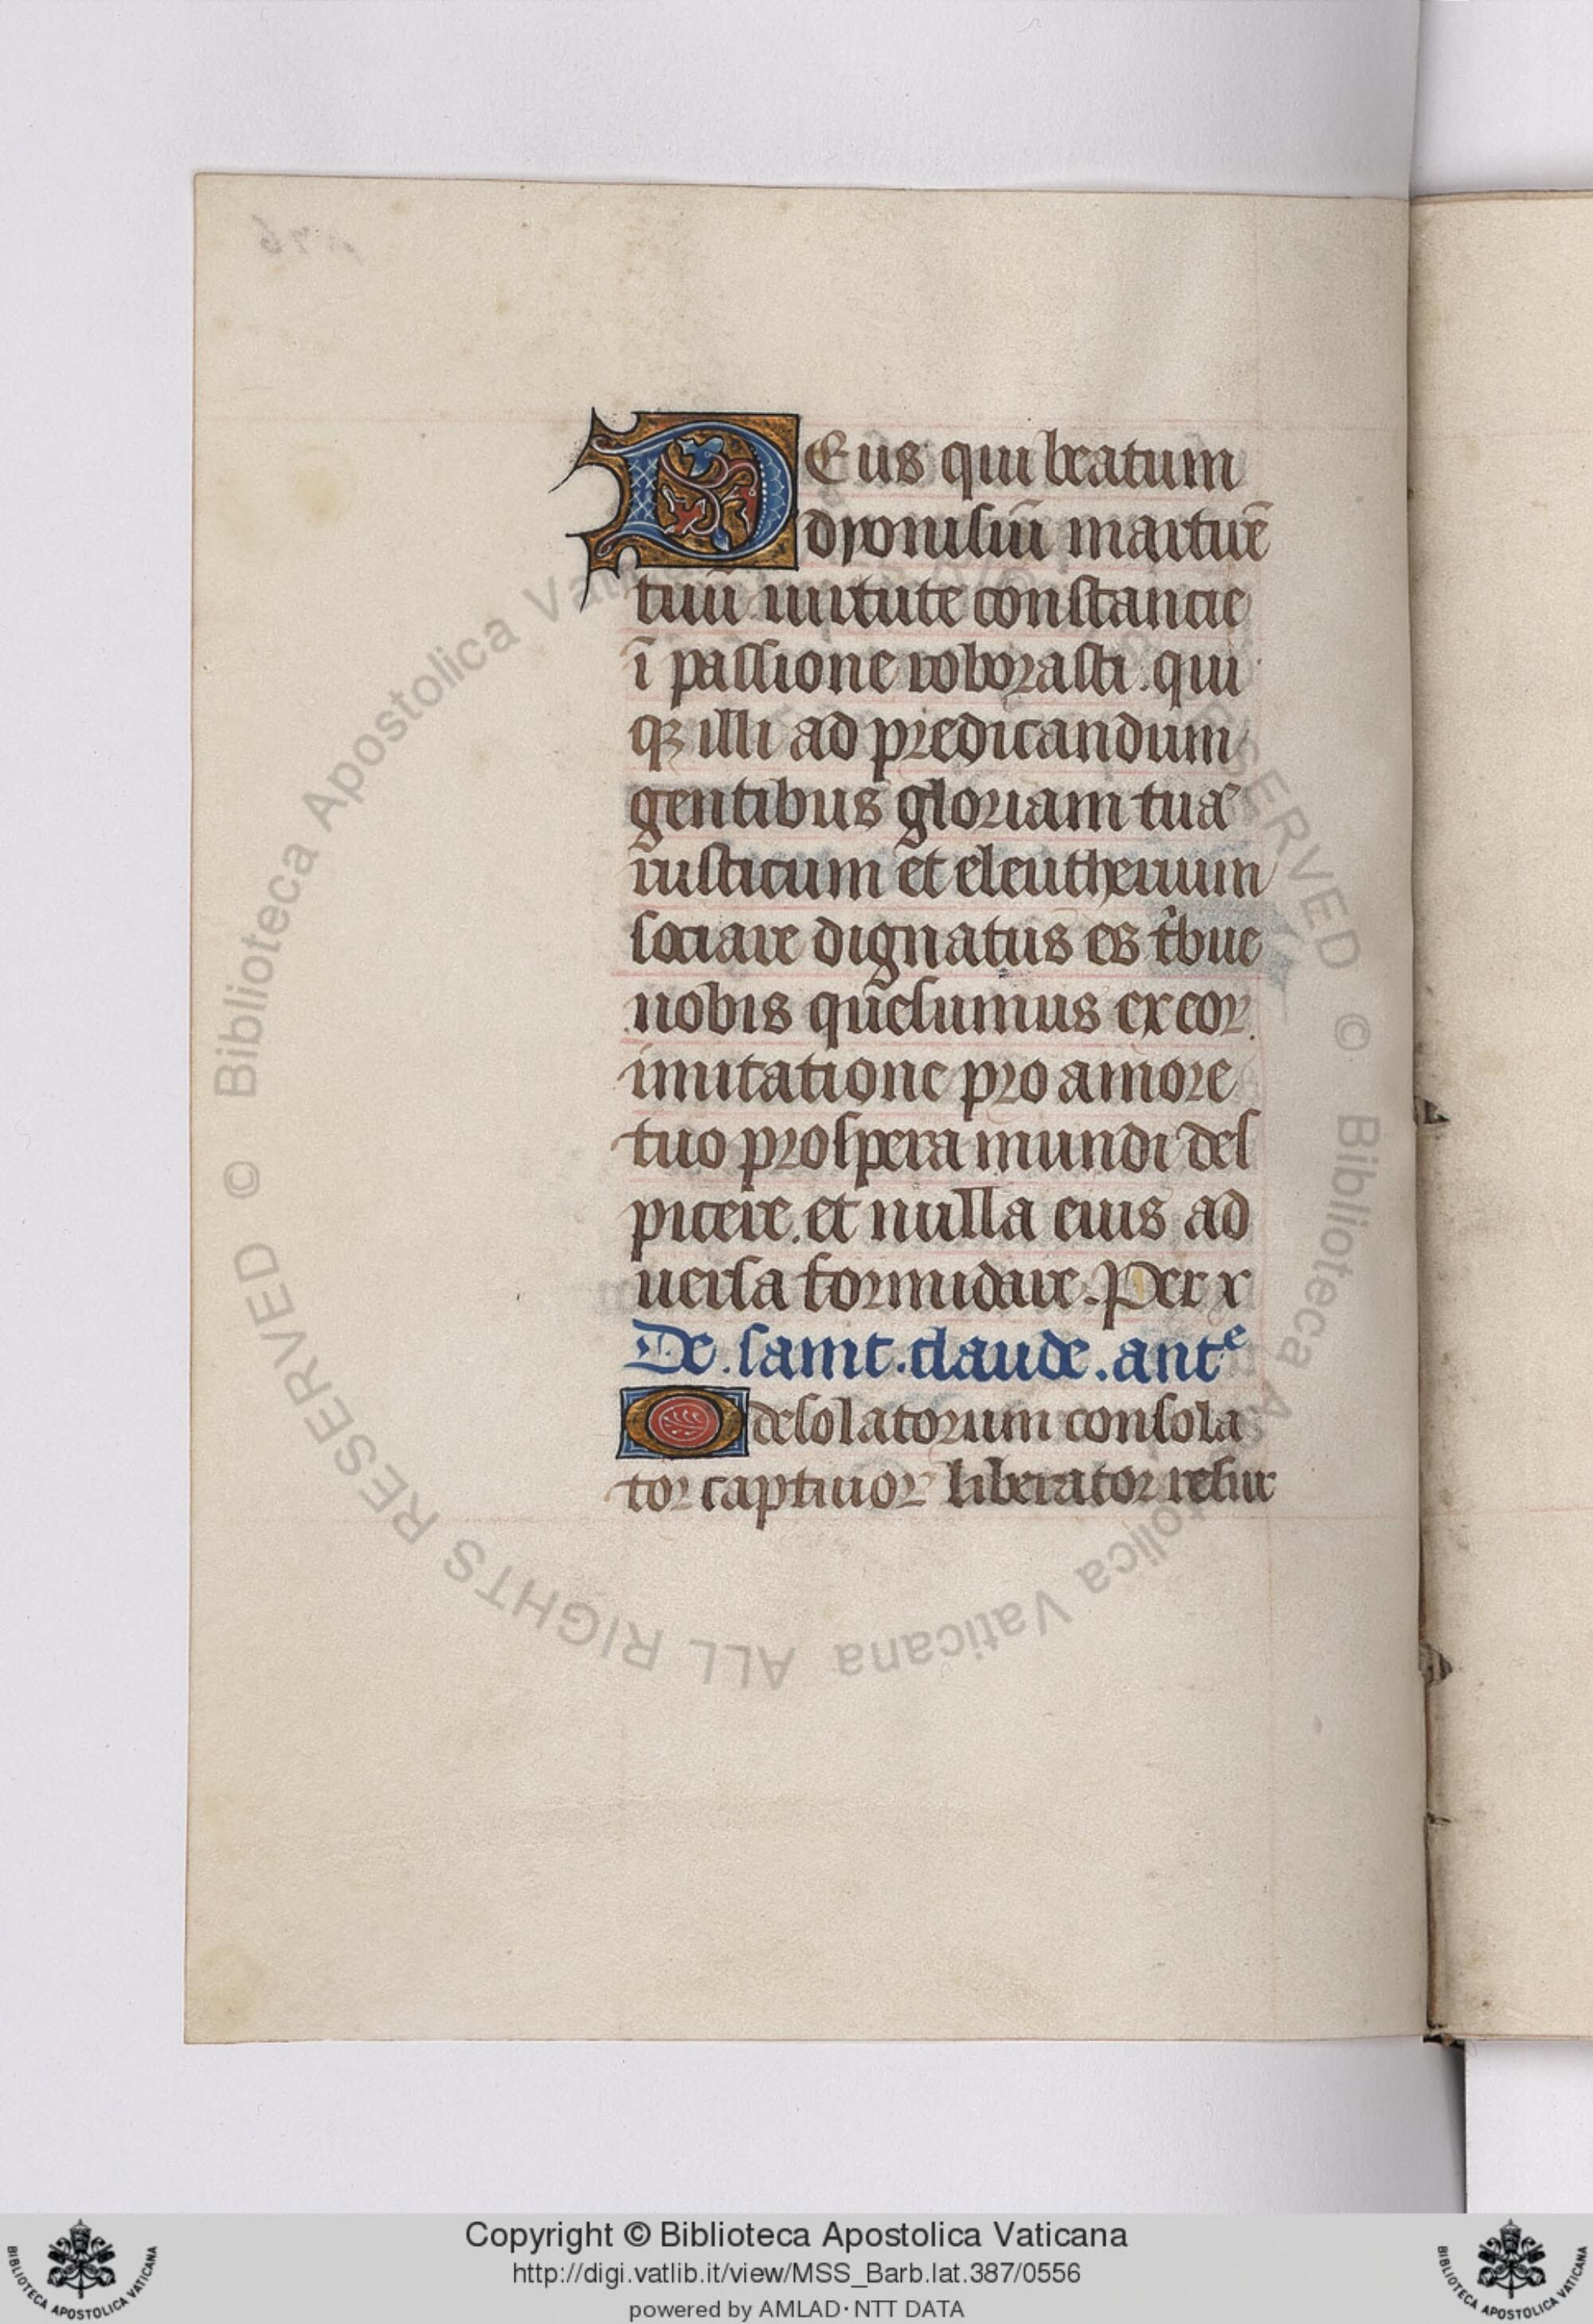 DEus qui beatum
dyonisiū martirē
tuū uirtute constancie
ī passione roborasti. qui
qꝫ illi ad predicandum
gentibus gloriam tuā
rusticum et eleutherium
sociare dignatus es tͥbue
nobis qūesumus ex eoꝝ
imitatione pro amore
tuo prospera mundi des
picere. et nulla eius ad
uersa formidare. Per x
De. saint. claude. antᵉ
O desolatorum consola
tor captiuoꝝ liberator resur
Copyright © Biblioteca Apostolica Vaticana
http://digi.vatlib.it/view/MSS_Barb.lat.387/0556
powered by AMLAD·NTT DATA
BIBLIOTECA APOSTOLICA VATICANA
BIBLIOTECA APOSTOLICA VATICANA
© Biblioteca Apostolica Vaticana ALL RIGHTS RESERVED